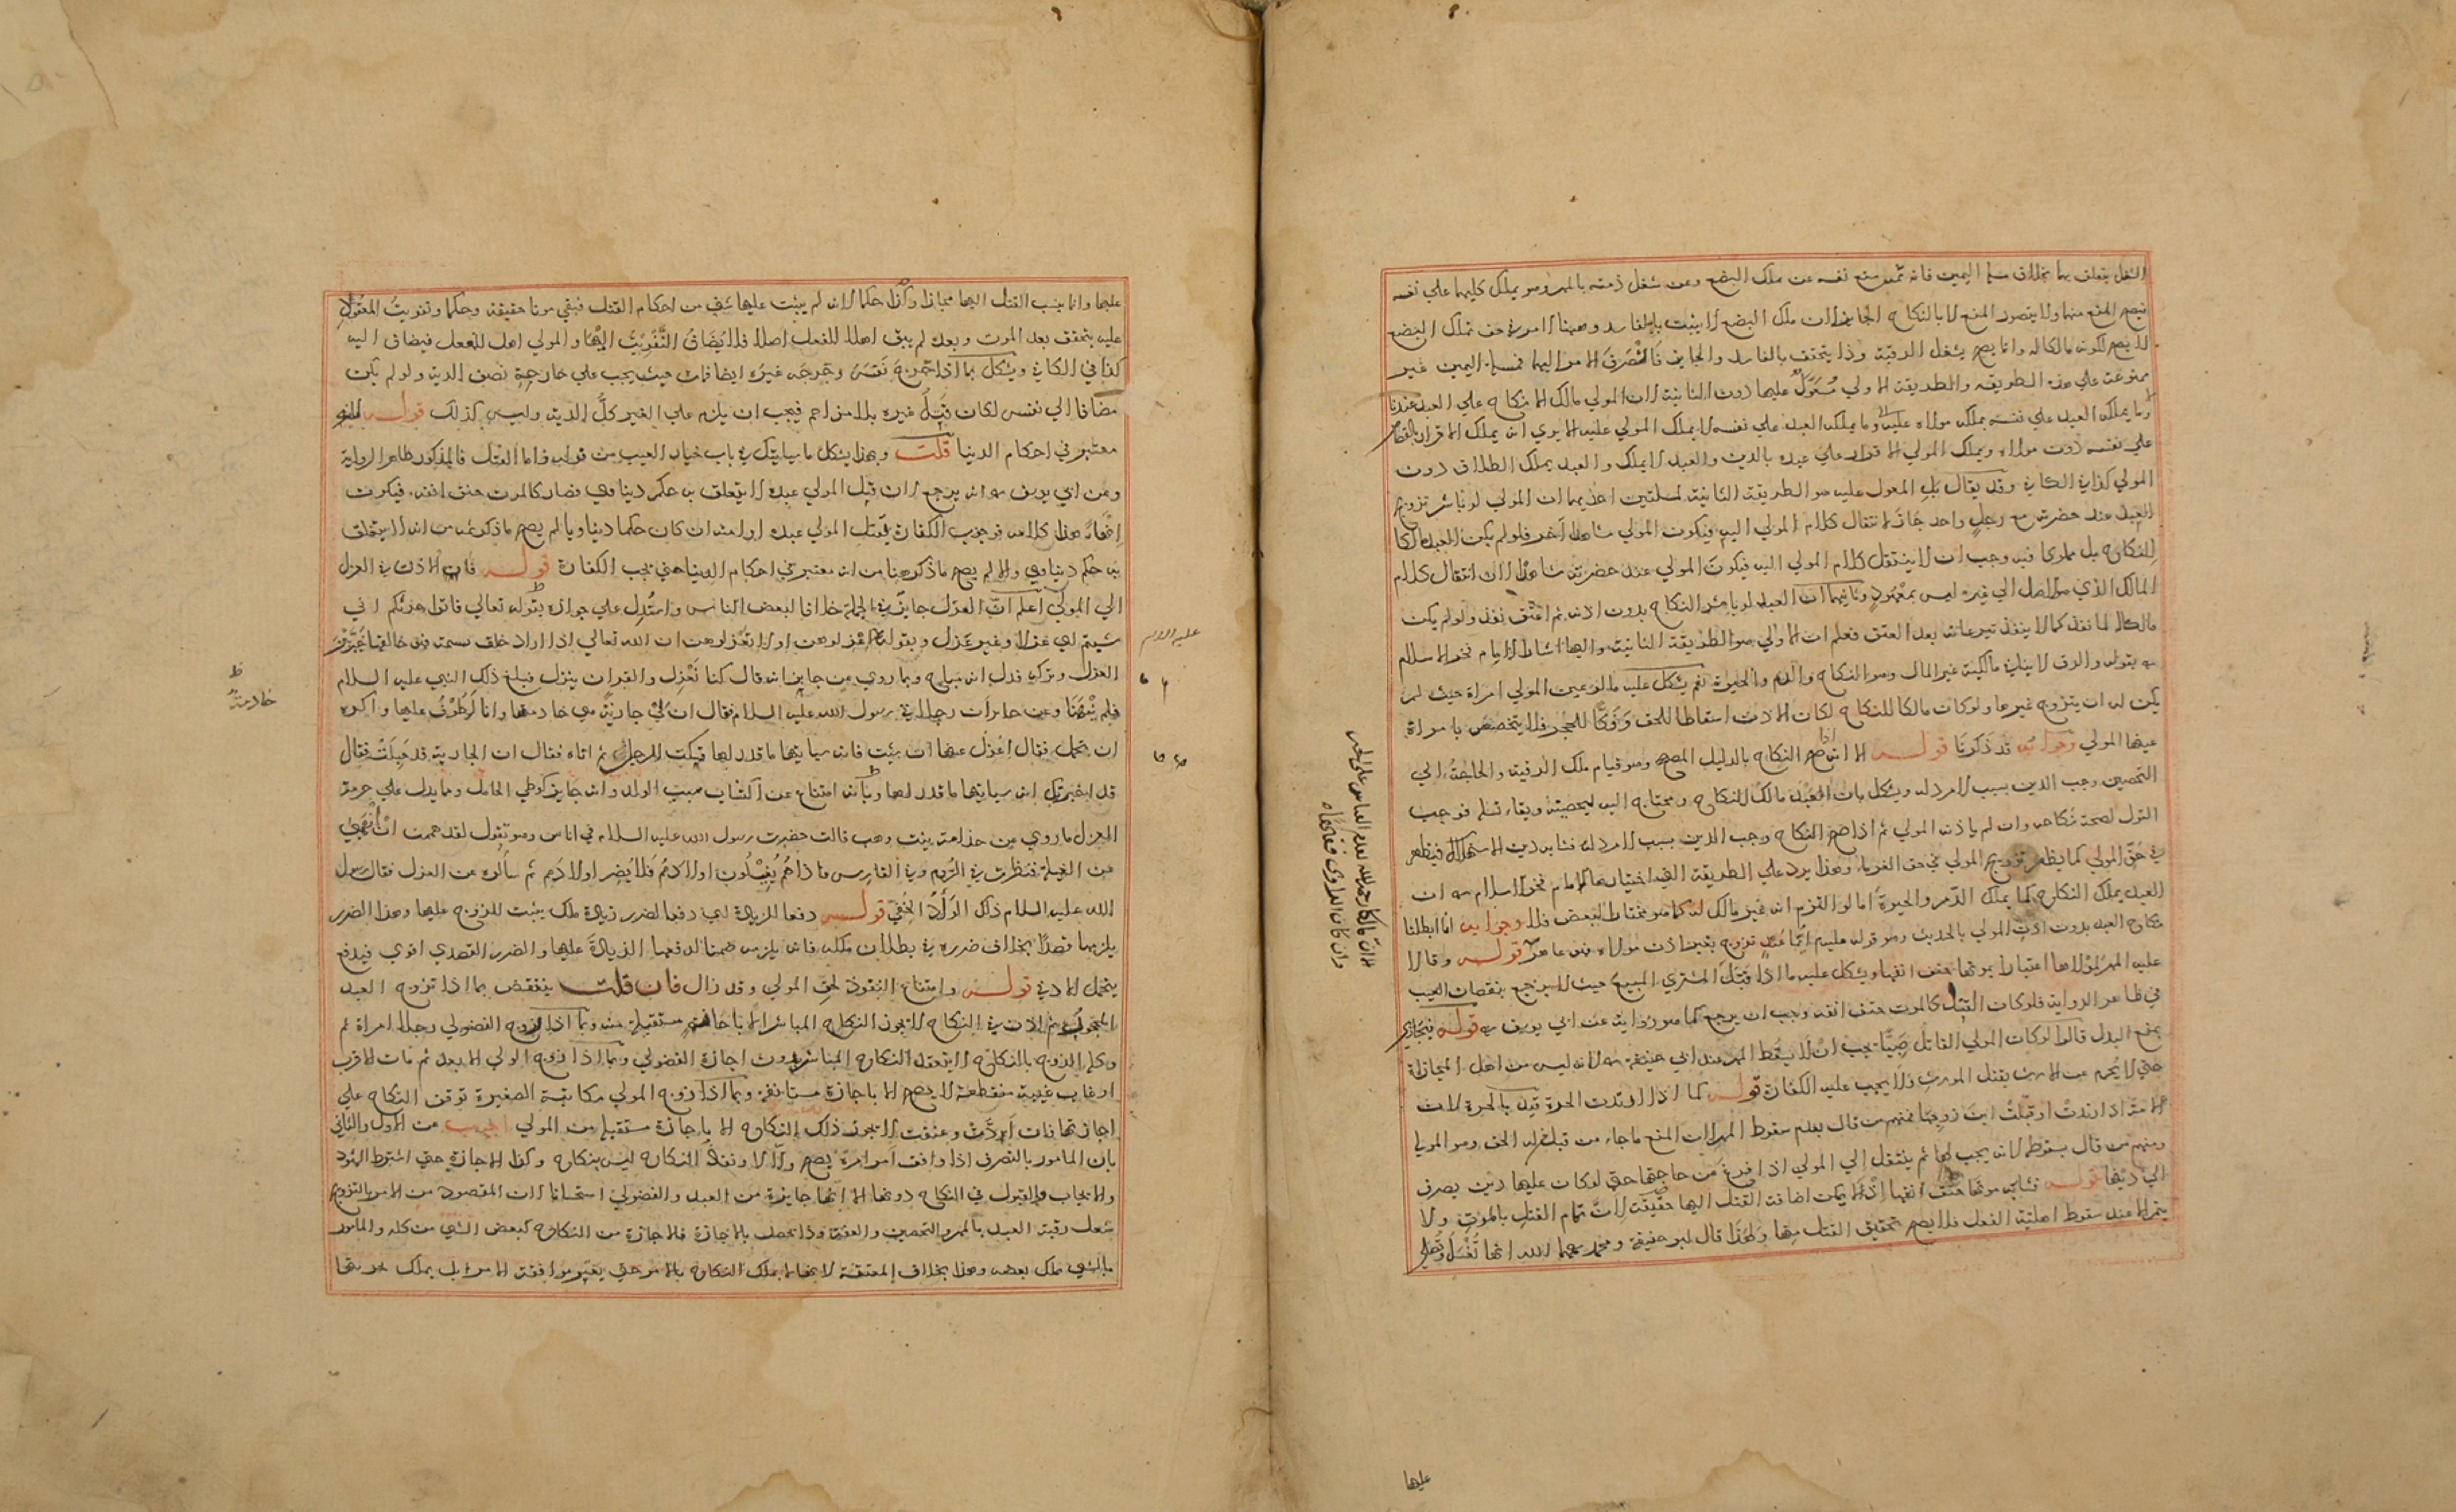 النقل يتعلق بها بخلاف مسئلة اليمين فانه ثمه منع نفسه عن ملك البضع وعن شغل ذمته بالمهر وهو يملك كليهما علي نفسه
فيصح المنع منهما ولا يتصور المنع الا بالنكاح الجايز لان ملك البضع لا يثبت بالفاسد وههنا الامر في حق تملك البضع
لا يصح لكونه مالكا له وانما يصح بشغل الرقبة وذا يتحقق بالفاسد والجايز فانصرف الامر اليهما فمسئلة اليمين غير
ممنوعة علي هذه الطريقة والطريقة الاولي معول عليها دون الثانية لان المولي مالك الانكاح علي العبد عندنا
وما يملك العبد علي نفسه يملك مولاه عليه وما يملك العبد علي نفسه لا يملك المولي عليه الا يري انه يملك الاقرار بالقصاص
علي نفسه دون مولاه ويملك المولي الاقرار علي عبده بالدين والعبد لا يملك والعبد يملك الطلاق دون
المولي كذا في الكافي وقد يقال بل المعول عليه هو الطريقة الثانية لمسئلتين احديهما ان المولي لو باشر تزويج
العبد عند حضرته مع رجل واحد جاز لانتقال كلام المولي اليه فيكون المولي شاهدا آخر فلو لم يكن العبد مالكا
للنكاح بل مملوكا فيه وجب ان لا ينتقل كلام المولي اليه فيكون المولي عند حضرته شاهدا لان انتقال كلام
المالك الذي هو الاصل الي غيره ليس بمعهود وثانيهما ان العبد لو باشر النكاح بدون الاذن ثم اعتق نفذ ولو لم يكن
مالكا لما نفذ كما لا ينفذ تبرعاته بعد العتق فعلم ان الاولي هو الطريقة الثانية واليها اشار الامام فخر الاسلام
بقوله والرق لا ينافي مالكية غير المال وهو النكاح والدم والحيوة نعم يشكل عليه ما لو عين المولي امراة حيث لم
يكن له ان يتزوج غيرها ولو كان مالكا للنكاح لكان الاذن اسقاطا للحق وفكا للحجر فلا يتخصص بامراة
عينها المولي وجوابه قد ذكرنا قوله الا انه اذا صح النكاح بالدليل المصحح وهو قيام ملك الرقبة والحاجة الي
التحصين وجب الدين بسبب لا مرد له ويشكل بان العبد مالك للنكاح ومحتاج اليه لتحصينه وبقاء نسله فوجب
القول لصحة نكاحه وان لم ياذن المولي ثم اذا صح النكاح وجب الدين بسبب لا مرد له فشابه دين الاستهلاك فيظهر
في حق المولي كما يظهر تزويج المولي في حق الغرماء وهذا يرد علي الطريقة التي اختارها الامام فخر الاسلام من ان
العبد يملك النكاح كما يملك الدم والحيوة اما لو التزم انه غير مالك له كما هو مختار البعض فلا وجوابه انا ابطلنا
نكاح العبد بدون اذن المولي بالحديث وهو قوله عليه السلام ايما عبد تزوج بغير اذن مولاه فهو عاهر قوله وقالا
عليه المهر لمولاها اعتبارا بموتها حتف انفها ويشكل عليه ما اذا قتل المشتري المبيع حيث لا يرجع بنقصان العيب
في ظاهر الرواية فلو كان القتل كالموت حتف انفه وجب ان يرجع كما هو رواية عن ابي يوسف قوله فيجازي
بمنع البدل قالوا لو كان المولي القاتل صبيا يجب ان لا يسقط المهر عند ابي حنيفة لانه ليس من اهل المجازاة
حتي لا يحرم عن الارث بقتل المورث ولا يجب عليه الكفارة قوله كما اذا ارتدت الحرة قيد بالحرة لان
الامة اذا ارتدت او قبلت ابن زوجها فمنهم من قال بعدم سقوط المهر لان المنع ما جاء من قبل من له الحق وهو المولي
ومنهم من قال بسقوطه لانه يجب لها ثم ينتقل الي المولي اذا فرغ عن حاجتها حتي لو كان عليها دين يصرف
الي دينها قوله فشابه موتها حتف انفها اذ لا يمكن اضافة القتل اليها حقيقة لان تمام القتل بالموت ولا
يتم الا عند سقوط اهلية الفعل فلا يصح تحقيق القتل منها ولهذا قال ابو حنيفة ومحمد رحمهما الله انها تغسل ويصلي
عليها
عليها وانما ينسب القتل اليها مجازا وكذا حكما لانه لم يثبت عليها شيء من احكام القتل فبقي موتا حقيقة وحكما وتفويت المعقود
عليه يتحقق بعد الموت وبعده لم يبق اهلا للفعل اصلا فلا يضاف التفويت اليها والمولي اهل للفعل فيضاف اليه
كذا في الكافي ويشكل بما اذا جرح نفسه وجرحه غيره ايضا فمات حيث يجب علي خارجه نصف الدية ولو لم يكن
مضافا الي نفسه لكان قتل غيره بلا مزاحم فيجب ان يلزم علي الغير كل الدية وليس كذلك قوله
معتبر في احكام الدنيا قلت وبهذا يشكل ما سياتيك في باب خيار العيب من قوله واما القتل فالمذكور ظاهر الرواية
وعن ابي يوسف انه يرجع لان قتل المولي عبده لا يتعلق به حكم دنياوي فصار كالموت حتف انفه فيكون
انهاء هذا كلامه فوجوب الكفارة بقتل المولي عبده او امته ان كان حكما دنياويا لم يصح ما ذكر ثمه من انه لا يتعلق
به حكم دنياوي والا لم يصح ما ذكر ههنا من انه معتبر في احكام الدنيا حتي تجب الكفارة قوله فان الاذن في العزل
الي المولي اعلم ان العزل جايز في الجملة خلافا لبعض الناس واستدل علي جوازه بقوله تعالي فاتوا حرثكم اني
شيتم اي عزلا وغير عزل وبقوله اعزلوهن او لا تعزلوهن ان الله تعالي اذا اراد خلق نسمة فهو خالقها
العزل وتركه فدل انه مباح وبما روي عن جابر انه قال كنا نعزل والقران ينزل فبلغ ذلك النبي عليه السلام
فلم ينهنا وعن جابر ان رجلا اتي رسول الله عليه السلام فقال ان لي جارية هي خادمتنا وانا اطوف عليها واكره
ان تحمل فقال اعزل عنها ان شيت فانه سياتيها ما قدر لها فمكث الرجل ثم اتاه فقال ان الجارية قد حبلت فقال
قد اخبرتك انه سياتيها ما قدر لها وبانه امتناع عن اكتساب سبب الولد وانه جايز كوطي الحامل وما يدل علي حرمة
العزل ما روي عن جذامة بنت وهب قالت حضرت رسول الله عليه السلام في اناس وهو يقول لقد هممت ان انهي
عن الغيلة فنظرت في الروم وفي الفارس فاذا هم يغيلون اولادهم فلا يضر اولادهم ثم سالوه عن العزل فقال رسول
الله عليه السلام ذلك الواد الخفي قوله دفعا للزيادة اي دفعا لضرر زيادة ملك يثبت للزوج عليها وهذا الضرر
يلزمها قصدا بخلاف ضرره في بطلان ملكه فانه يلزمه ضمنا لدفعها الزيادة عليها والضرر القصدي اقوي فيدفع
بتحمل الادني قوله وامتناع النفوذ لحق المولي وقد زال فان قلت ينتقض بما اذا تزوج العبد
المحجور ثم اذن في النكاح لا يجوز النكاح المباشر الا باجازة مستقبلة منه وبما اذا زوج الفضولي رجلا امراة ثم
وكله الزوج بالنكاح لا ينفذ النكاح المباشر بدون اجازة الفضولي وبما اذا زوج الولي الابعد ثم مات الاقرب
او غاب غيبة منقطعة لا يصح الا باجازة مستانفة وبما اذا زوج المولي مكاتبة الصغيرة توقف النكاح علي
اجازتها فان ادت وعتقت لا يجوز ذلك النكاح الا باجازة مستقبلة من المولي اجيب عن الاول والثاني
بان المامور بالتصرف اذا وافق امر امره يصح والا لا ونفاذ النكاح ليس بنكاح وكذا الاجازة حتي اشترط الشهود
والايجاب والقبول في النكاح دونها الا انها جايزة من العبد والفضولي استحسانا لان المقصود من الامر بالتزوج
شغل رقبة العبد بالمهر والتحصين والعفة وذا يحصل بالاجازة فالاجازة من النكاح كبعض الشي من كله والمامور
بالشي يملك بعضه وهذا بخلاف المعتقة لانها لا يملك النكاح بالامر حتي يعتبر موافقة الامر بل يملك بحريتها
عليه السلام
خادمتنا